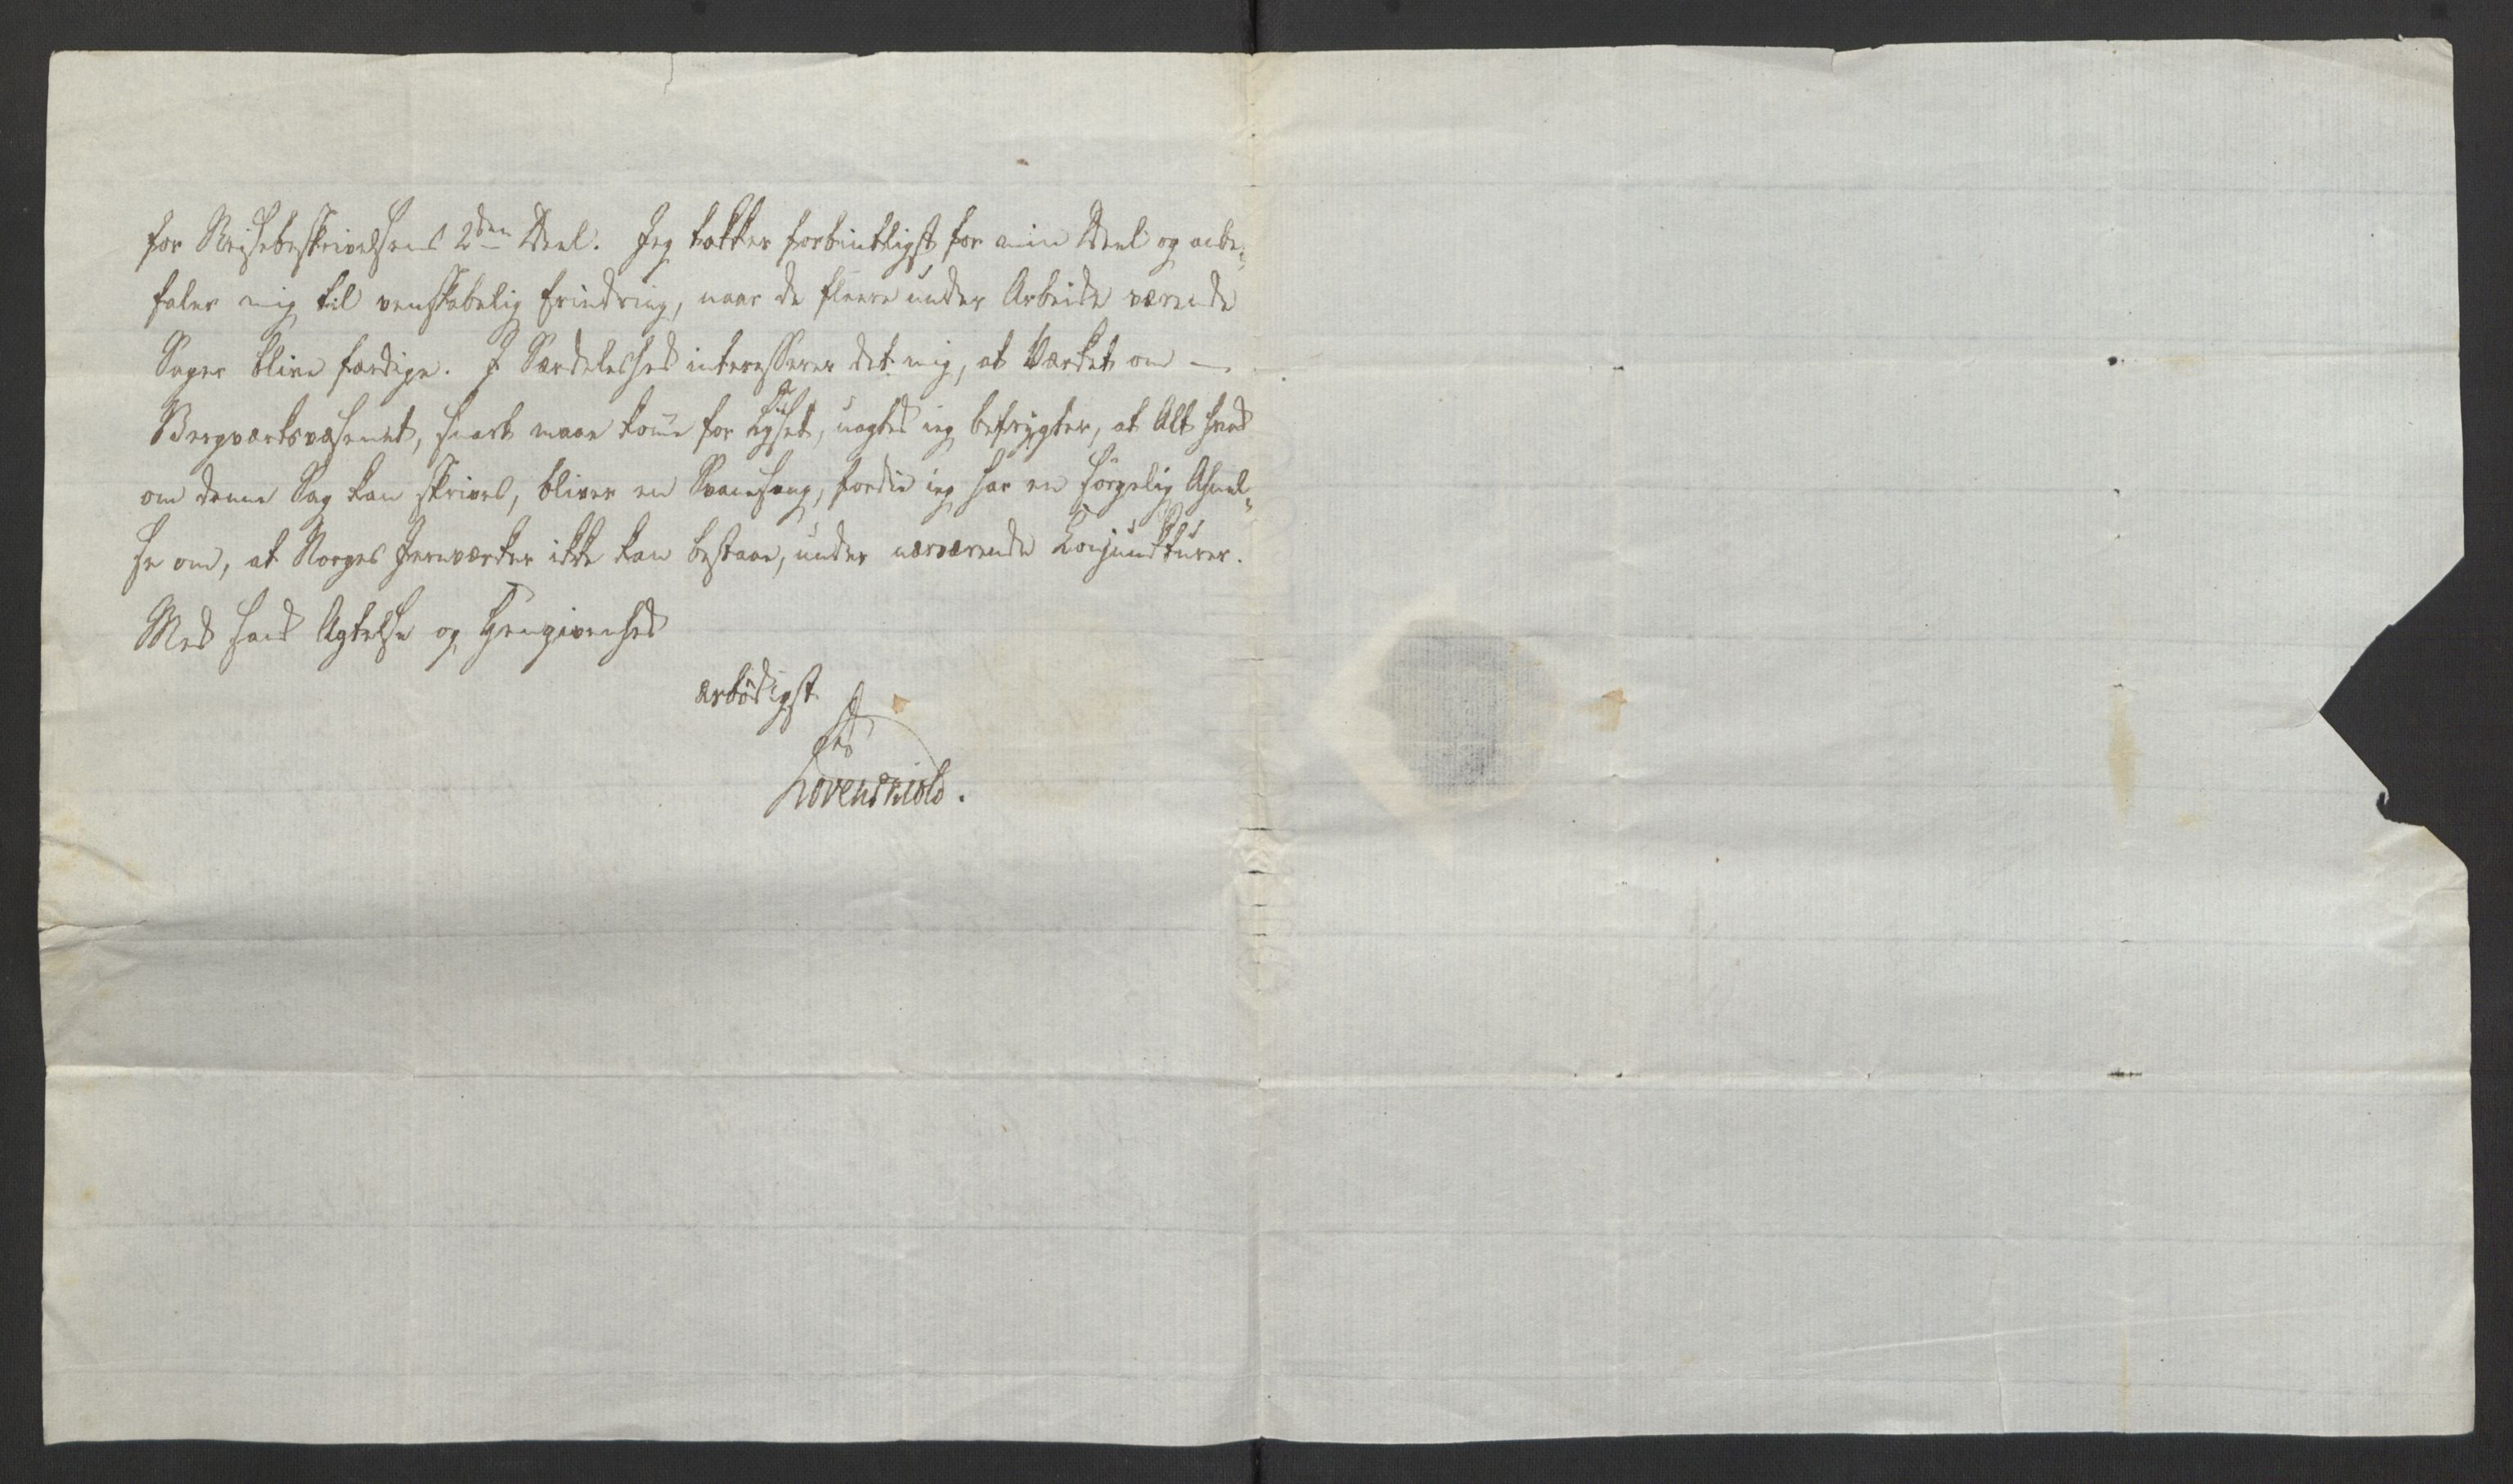 for Reisebeskrivelsens 2den Deel. Jeg takker forbindtligst for min Deel og anbe-
faler mig til venskabelig Erindring, naar de fleere under Arbeide værende
Sager blive færdige. I Særdeleshed interesserer det mig, at Værket om —
Bergværksvæsenet, snart maae kom̄e for Lyset, uagted ieg befrygter, at Alt hvad
om denne Sag kan skrives, bliver en Svanesang, fordie ieg har en sörgelig Ahnel-
se om, at Norges Jernværker ikke kan bestaae, under nærværende Conjuncturer.
Med sand Agtelse og Hengivenhed
ærbödigst
Lövenskiold.